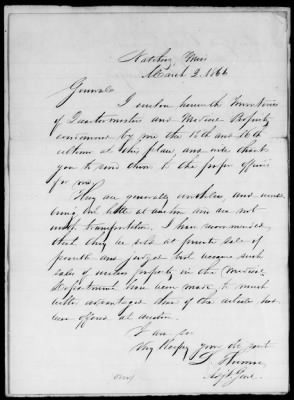 Natchez, Miss
March 2, 1866
General
I enclose herewith Inventories
of Quartermaster and Medical Property
by me the 15th and 16th
at this place and will thank
you to send them to the proper officers
for me.
They are generally worthless and would
bring but little at auction and are not
worth transportation. I have recommended
that they be sold at private sale if
possible and because such
sales of property in the Medical
Department have been made to much
better advantage than if the articles had
been offered at auction.
I am sir
Very Respy your obt servt